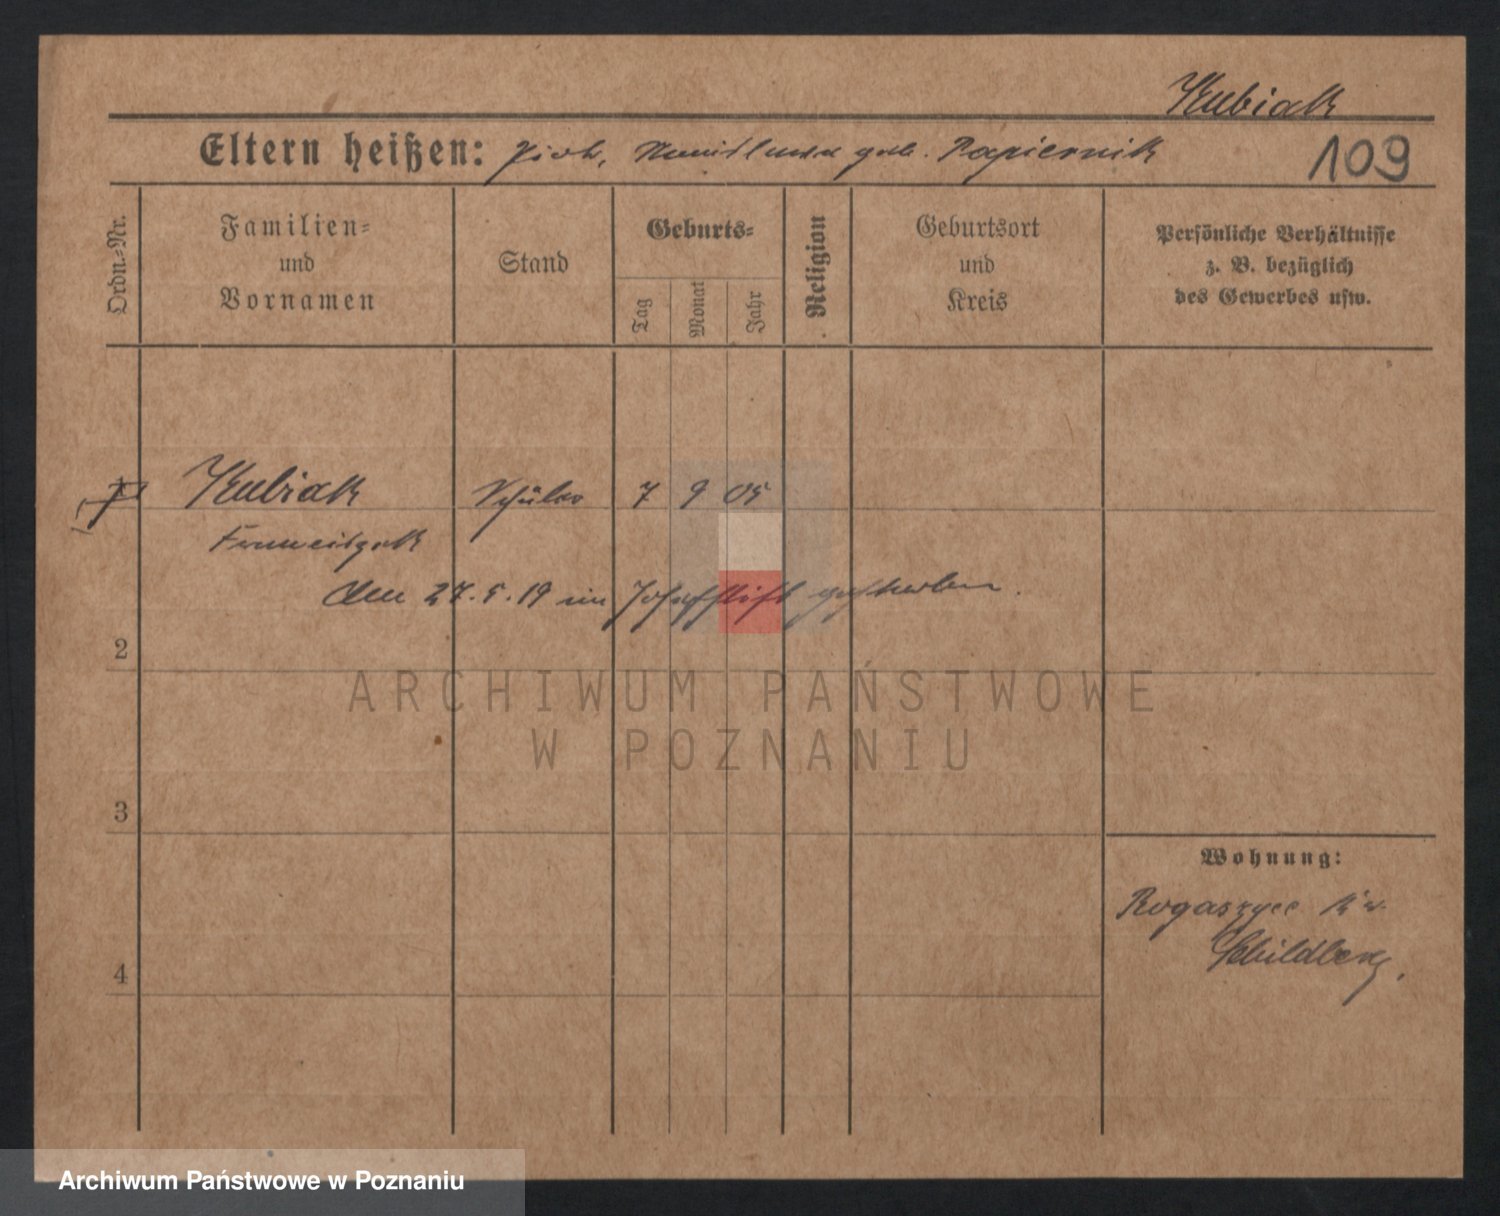 Kubiak
Eltern heißen: Piotr, Stanislawa geb. Papiernik
109
Ordn.-Nr.
Familien-
und
Vornamen
Stand
Geburts-
Tag
Monat
Jahr
Religion
Geburtsort
und
Kreis
Persönliche Verhältnisse
z. B. bezüglich
des Gewerbes usw.
Kubiak Schüler 7 9 05
Franciszek
den 27.5.19 im Josefstift gestorben.
2
3
4
Wohnung:
Rogaszyce Kr.
Schildberg.
ARCHIWUM PAŃSTWOWE
W POZNANIU
Archiwum Państwowe w Poznaniu